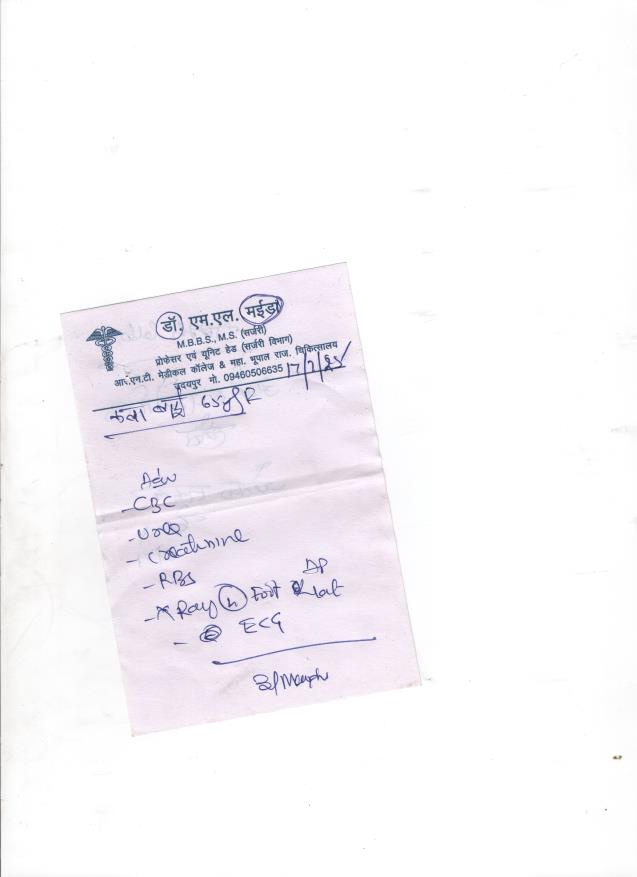 डॉ. एम.एल. मईडा
M.B.B.S., M.S. (सर्जरी)
प्रोफेसर एवं यूनिट हेड (सर्जरी विभाग)
आर.एन.टी. मेडीकल कॉलेज & महा. भूपाल राज. चिकित्सालय
उदयपुर मो. 09460506635
बाई 65
Adv
- CBC
- Urea
- Creatinine
- RBS
- X Ray Foot AP Lat
- ECG